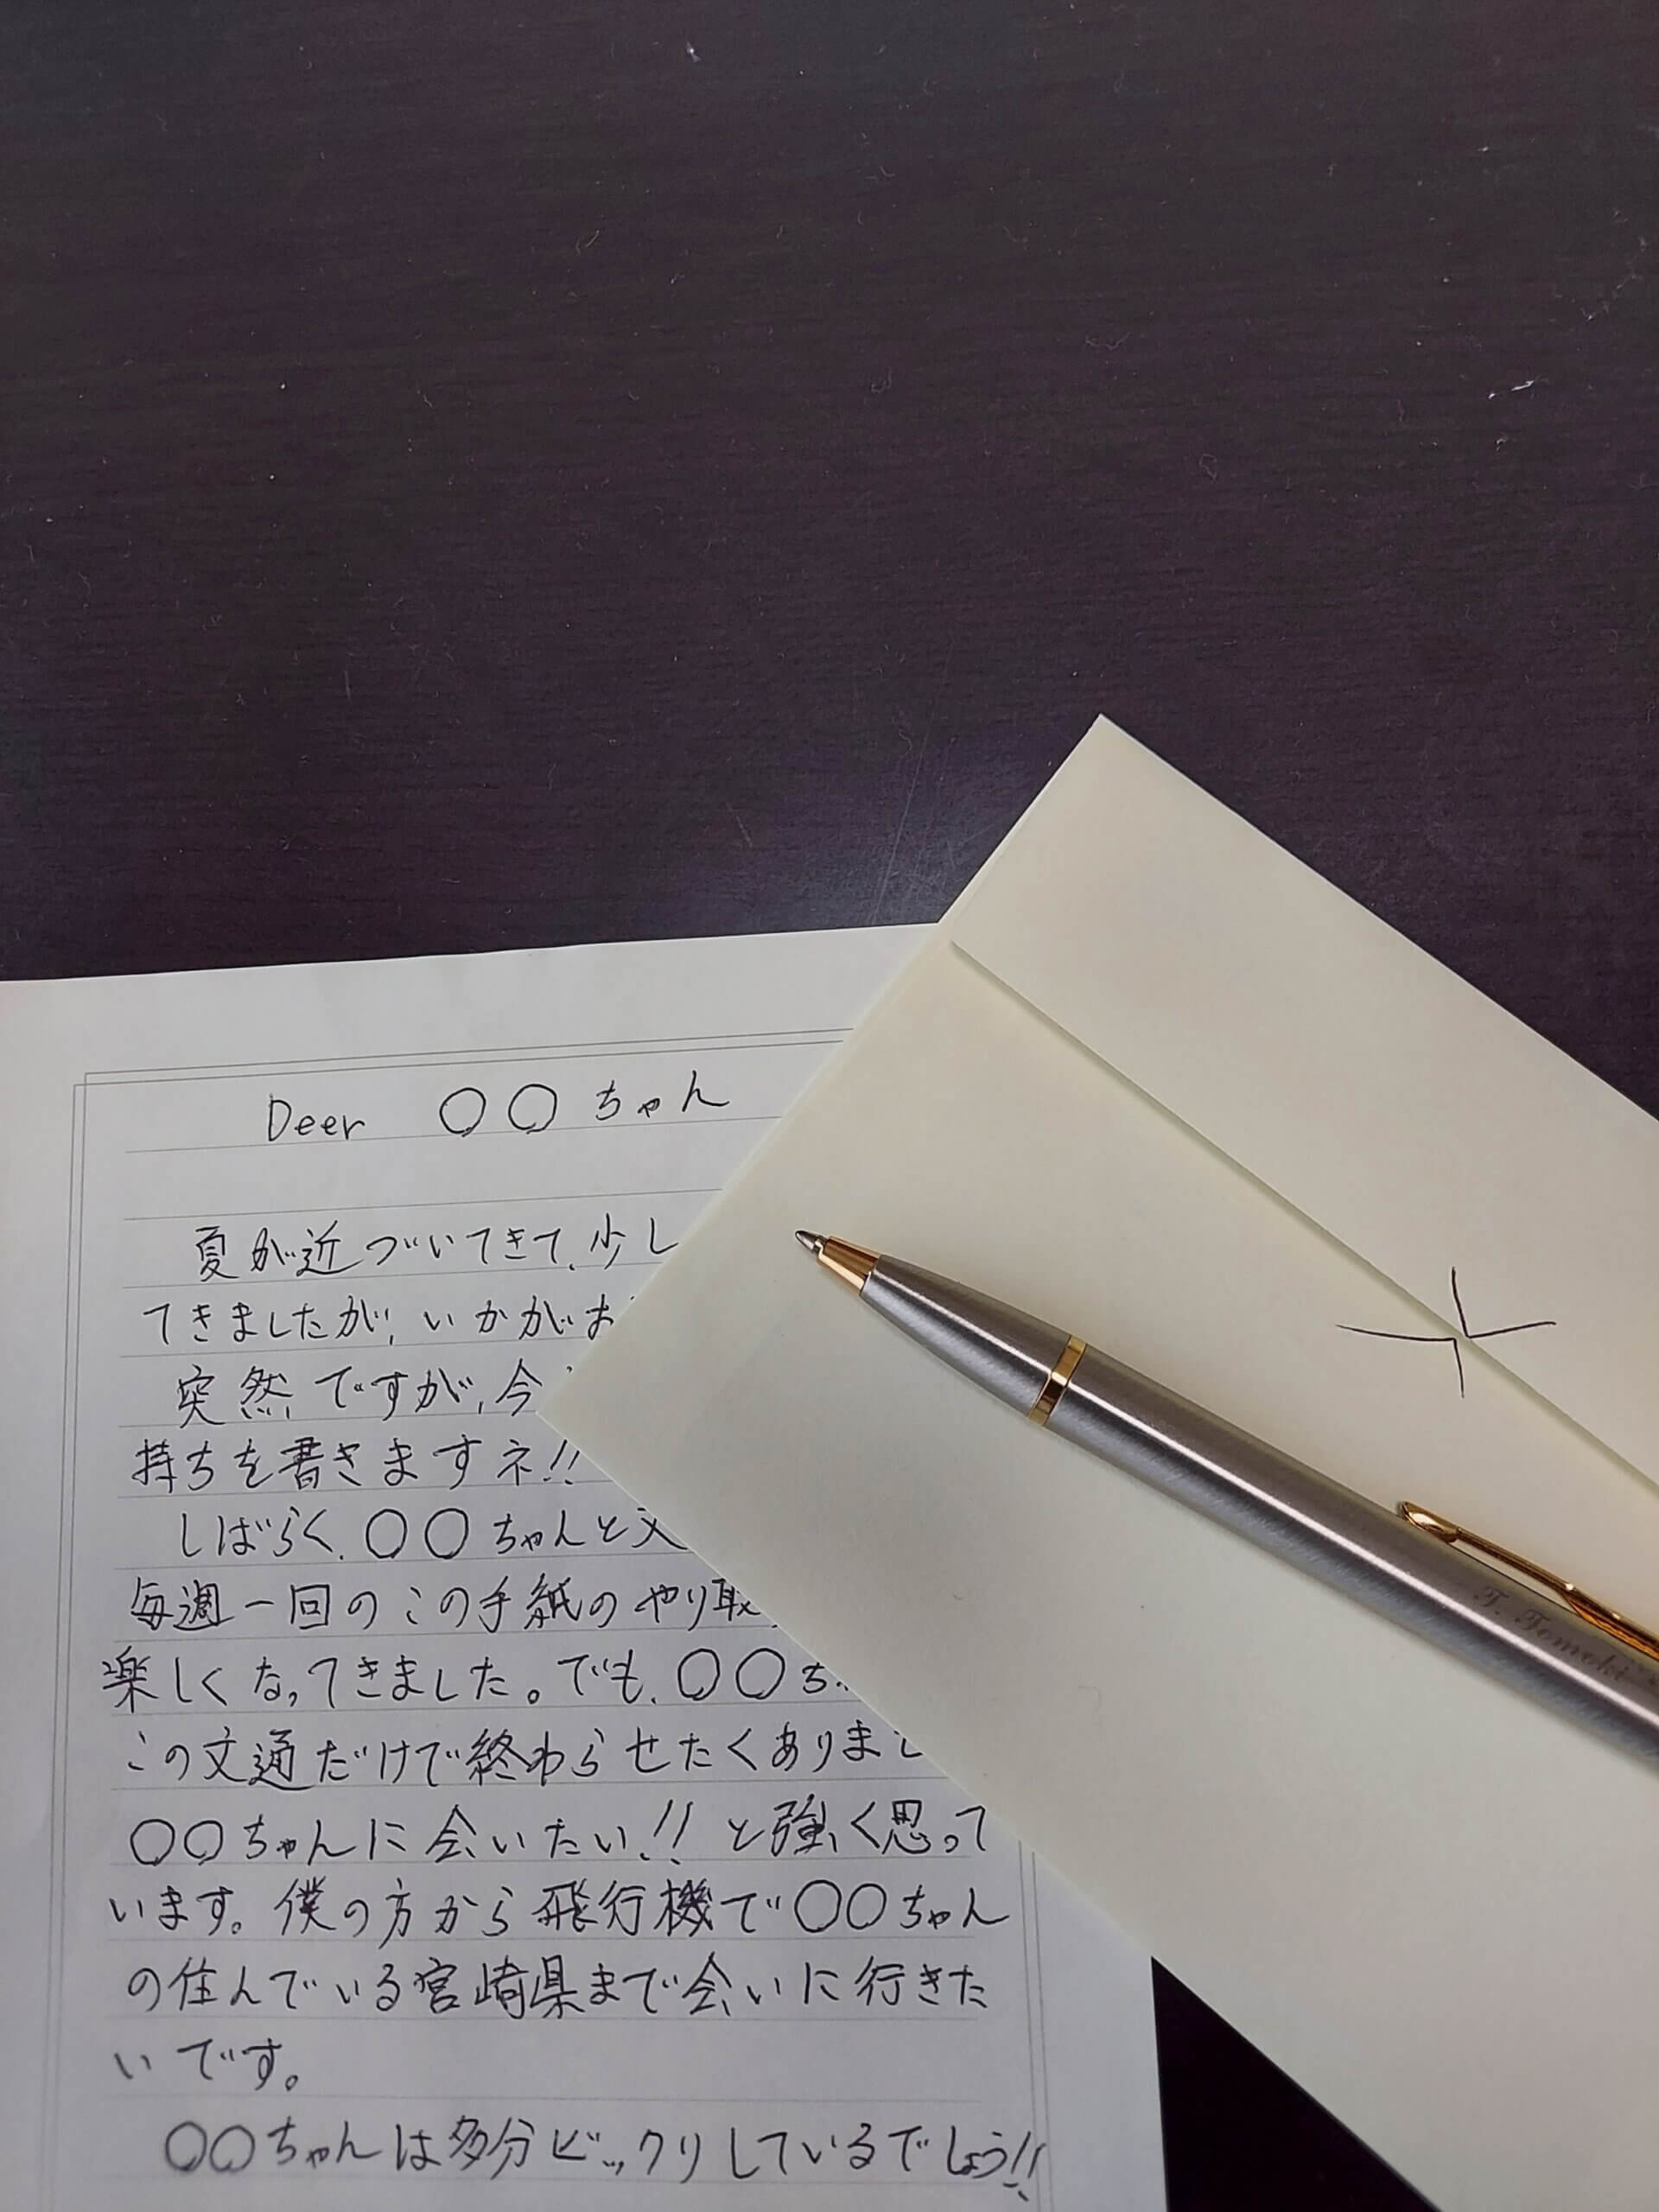 Deer 〇〇ちゃん
夏が近づいてきて、少し
てきましたが、いかがお
突然ですが、今
持ちを書きますネ!!
しばらく、〇〇ちゃんと文
毎週一回のこの手紙のやり取
楽しくなってきました。でも、〇〇ち
この文通だけで終わらせたくありまし
〇〇ちゃんに会いたい!!と強く思って
います。僕の方から飛行機で〇〇ちゃん
の住んでいる宮崎県まで会いに行きた
いです。
〇〇ちゃんは多分ビックリしているでしょう!!
T. Tomoki